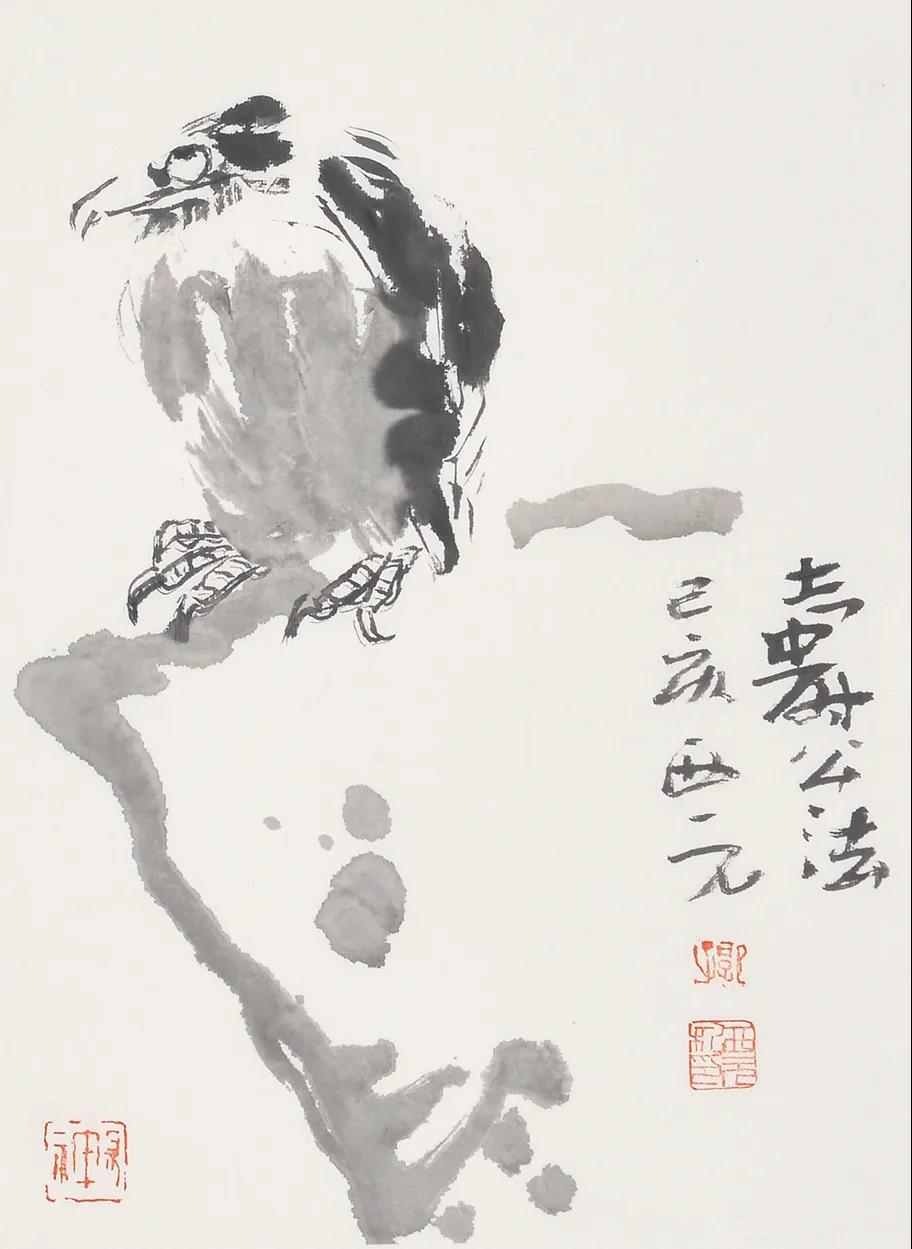 壽公法
己亥西元